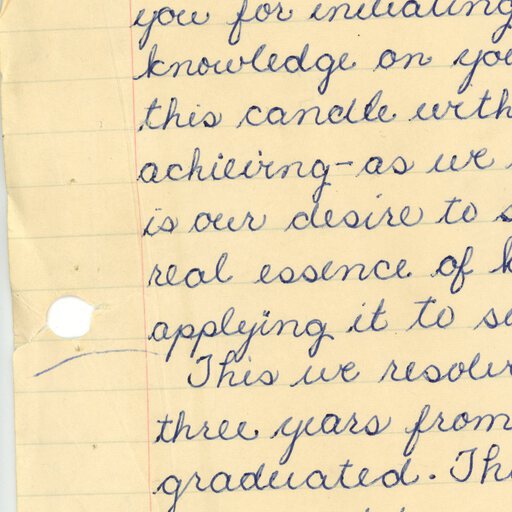 you for initiating
knowledge on you
this candle with
achieving-as we
is our desire to s
real essence of k
applying it to se
This we resolve
three years from
graduated. Thi